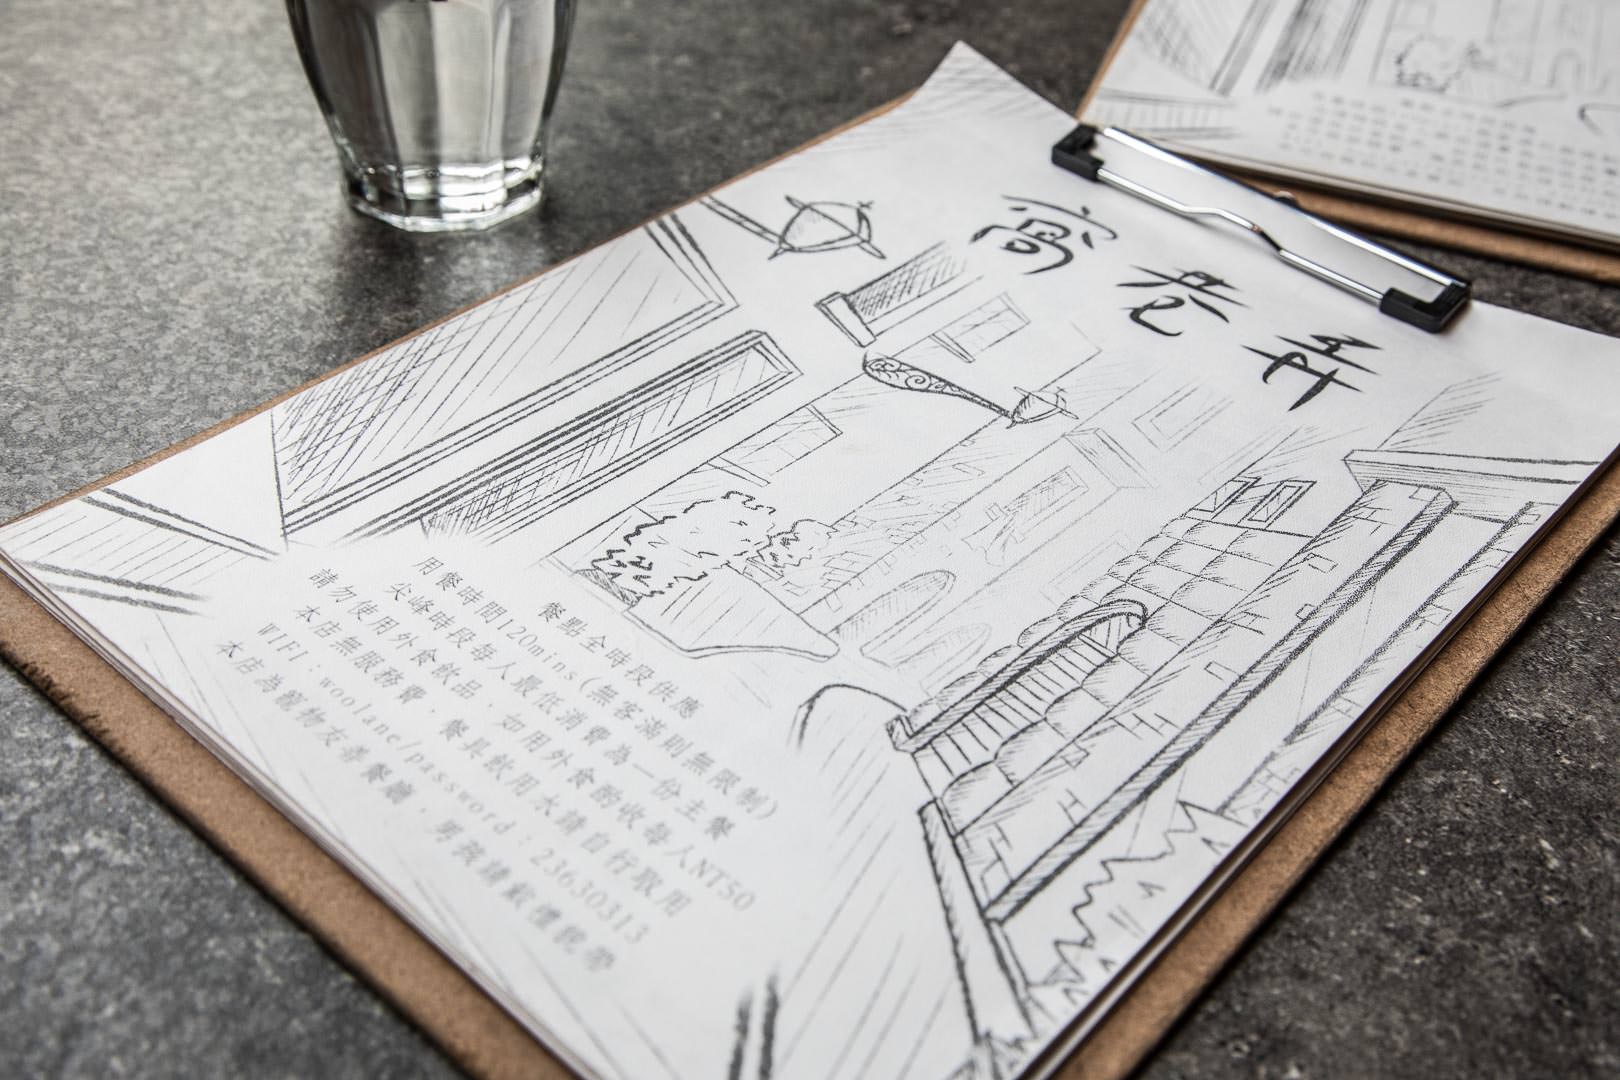 窩巷弄
餐點全時段供應
用餐時間120mins(無客滿則無限制)
尖峰時段每人最低消費為一份主餐
請勿使用外食飲品，如用外食酌收每人NT50
本店無服務費，餐具飲用水請自行取用
WIFI：woolane/password：23630313
本店為寵物友善餐廳，男孩請戴禮貌帶